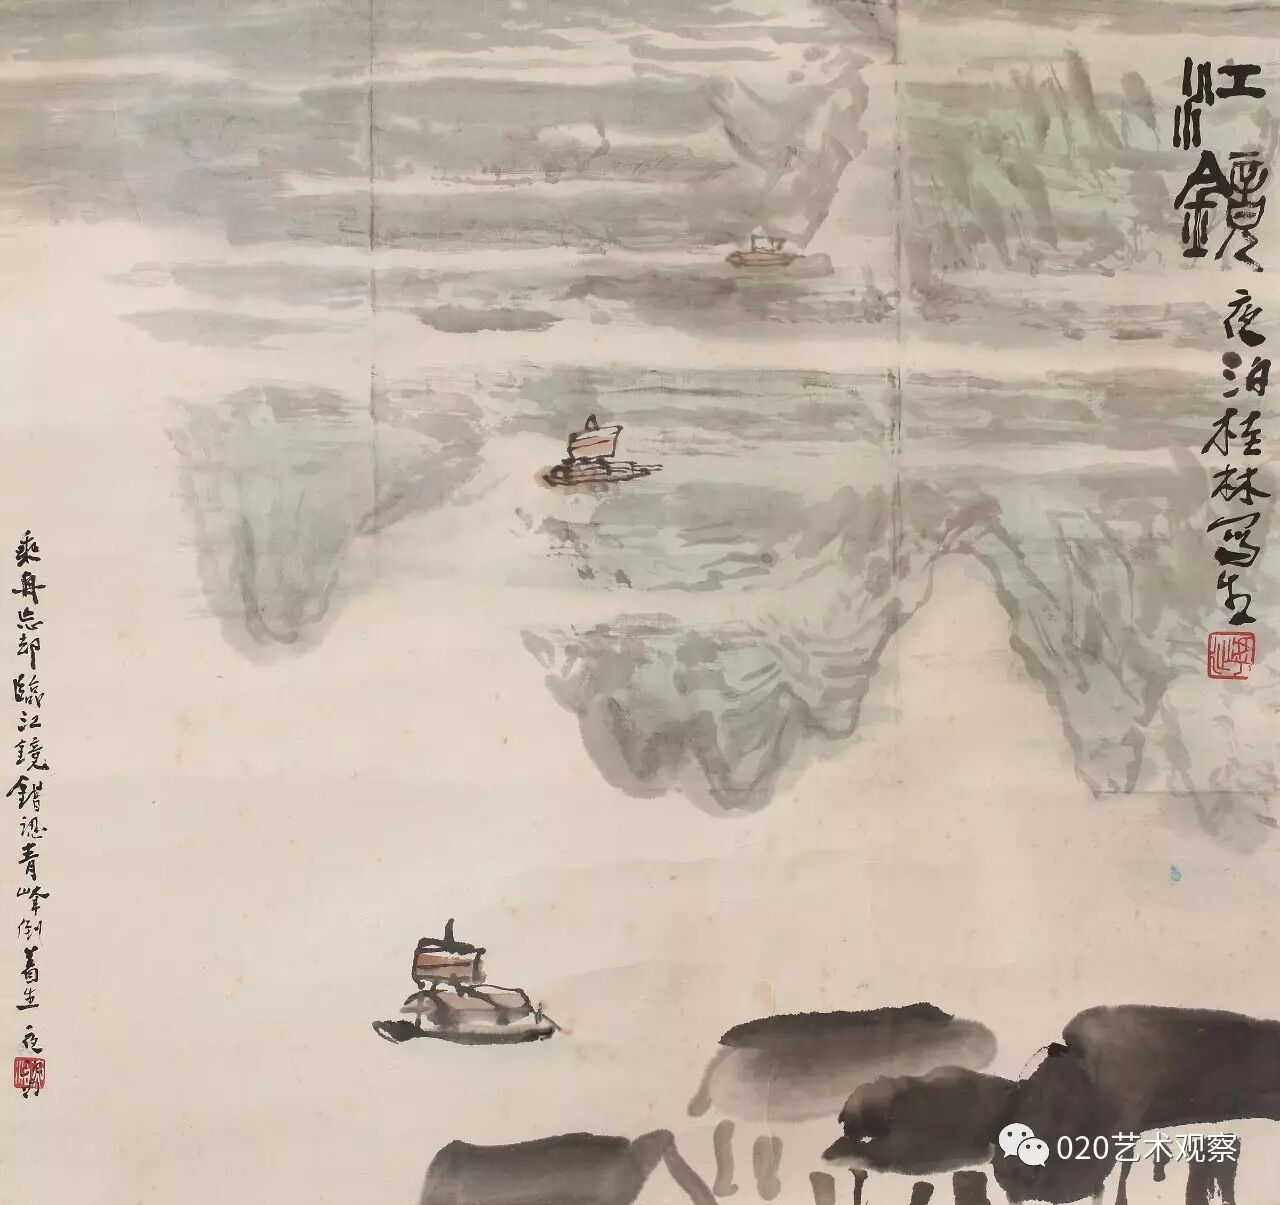 江鏡
夜泊桂林写生
乘舟忘却臨江鏡錯認青峰倒着生 夜
020艺术观察